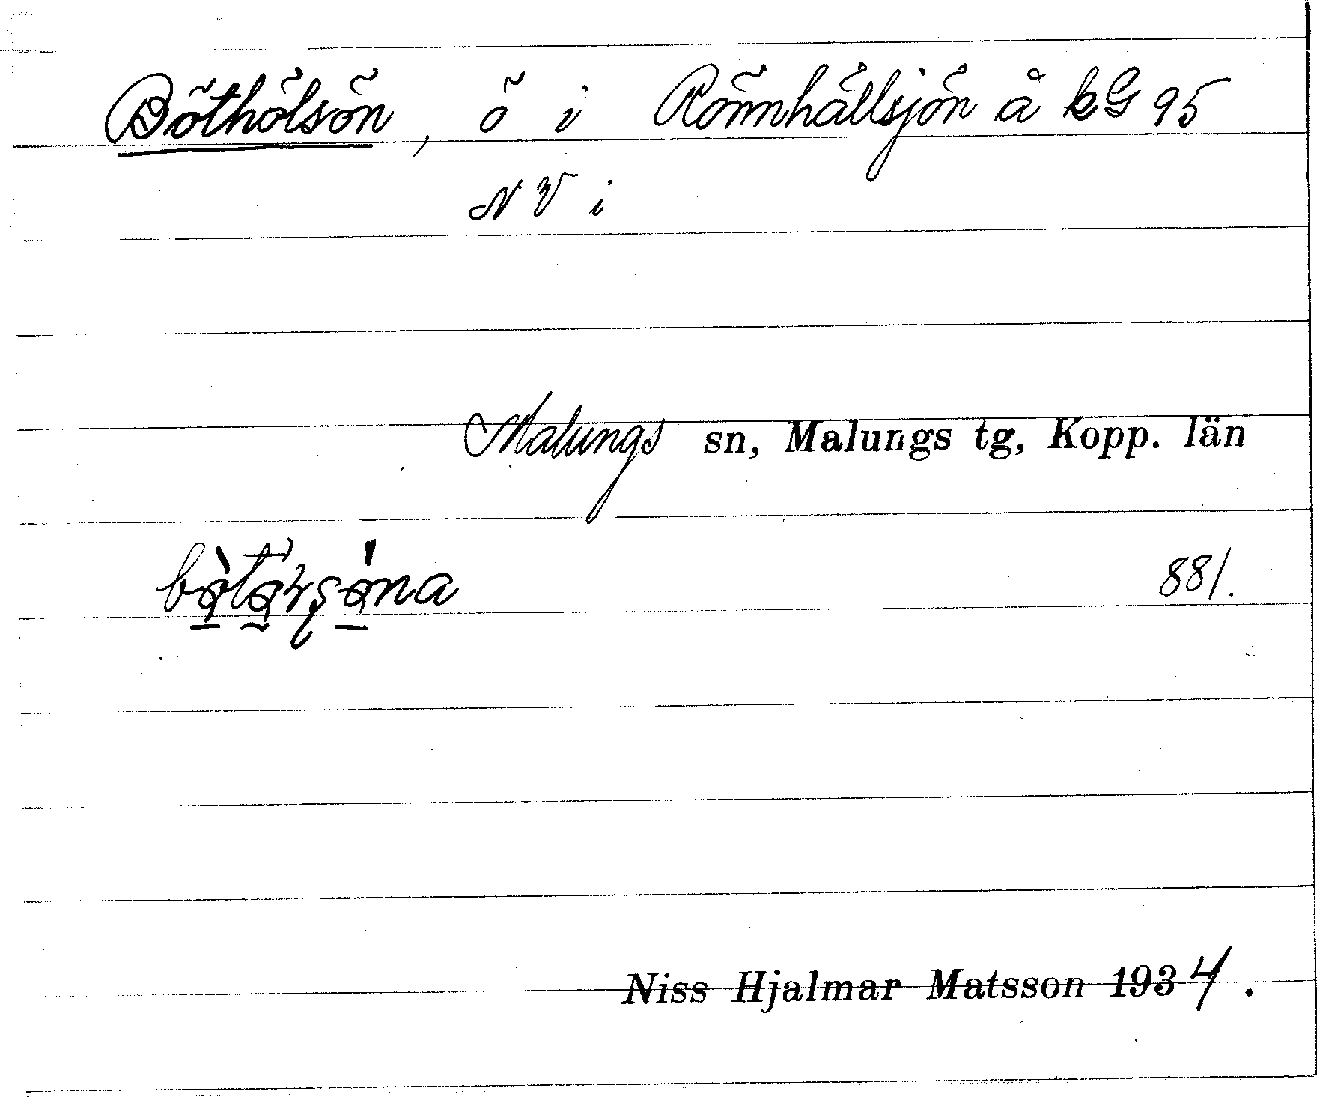 Böthölsön, ö i Rönnhållsjön å kG 95
NV i
Malungs sn, Malungs tg, Kopp. län
881.
Niss Hjalmar Matsson 1934.